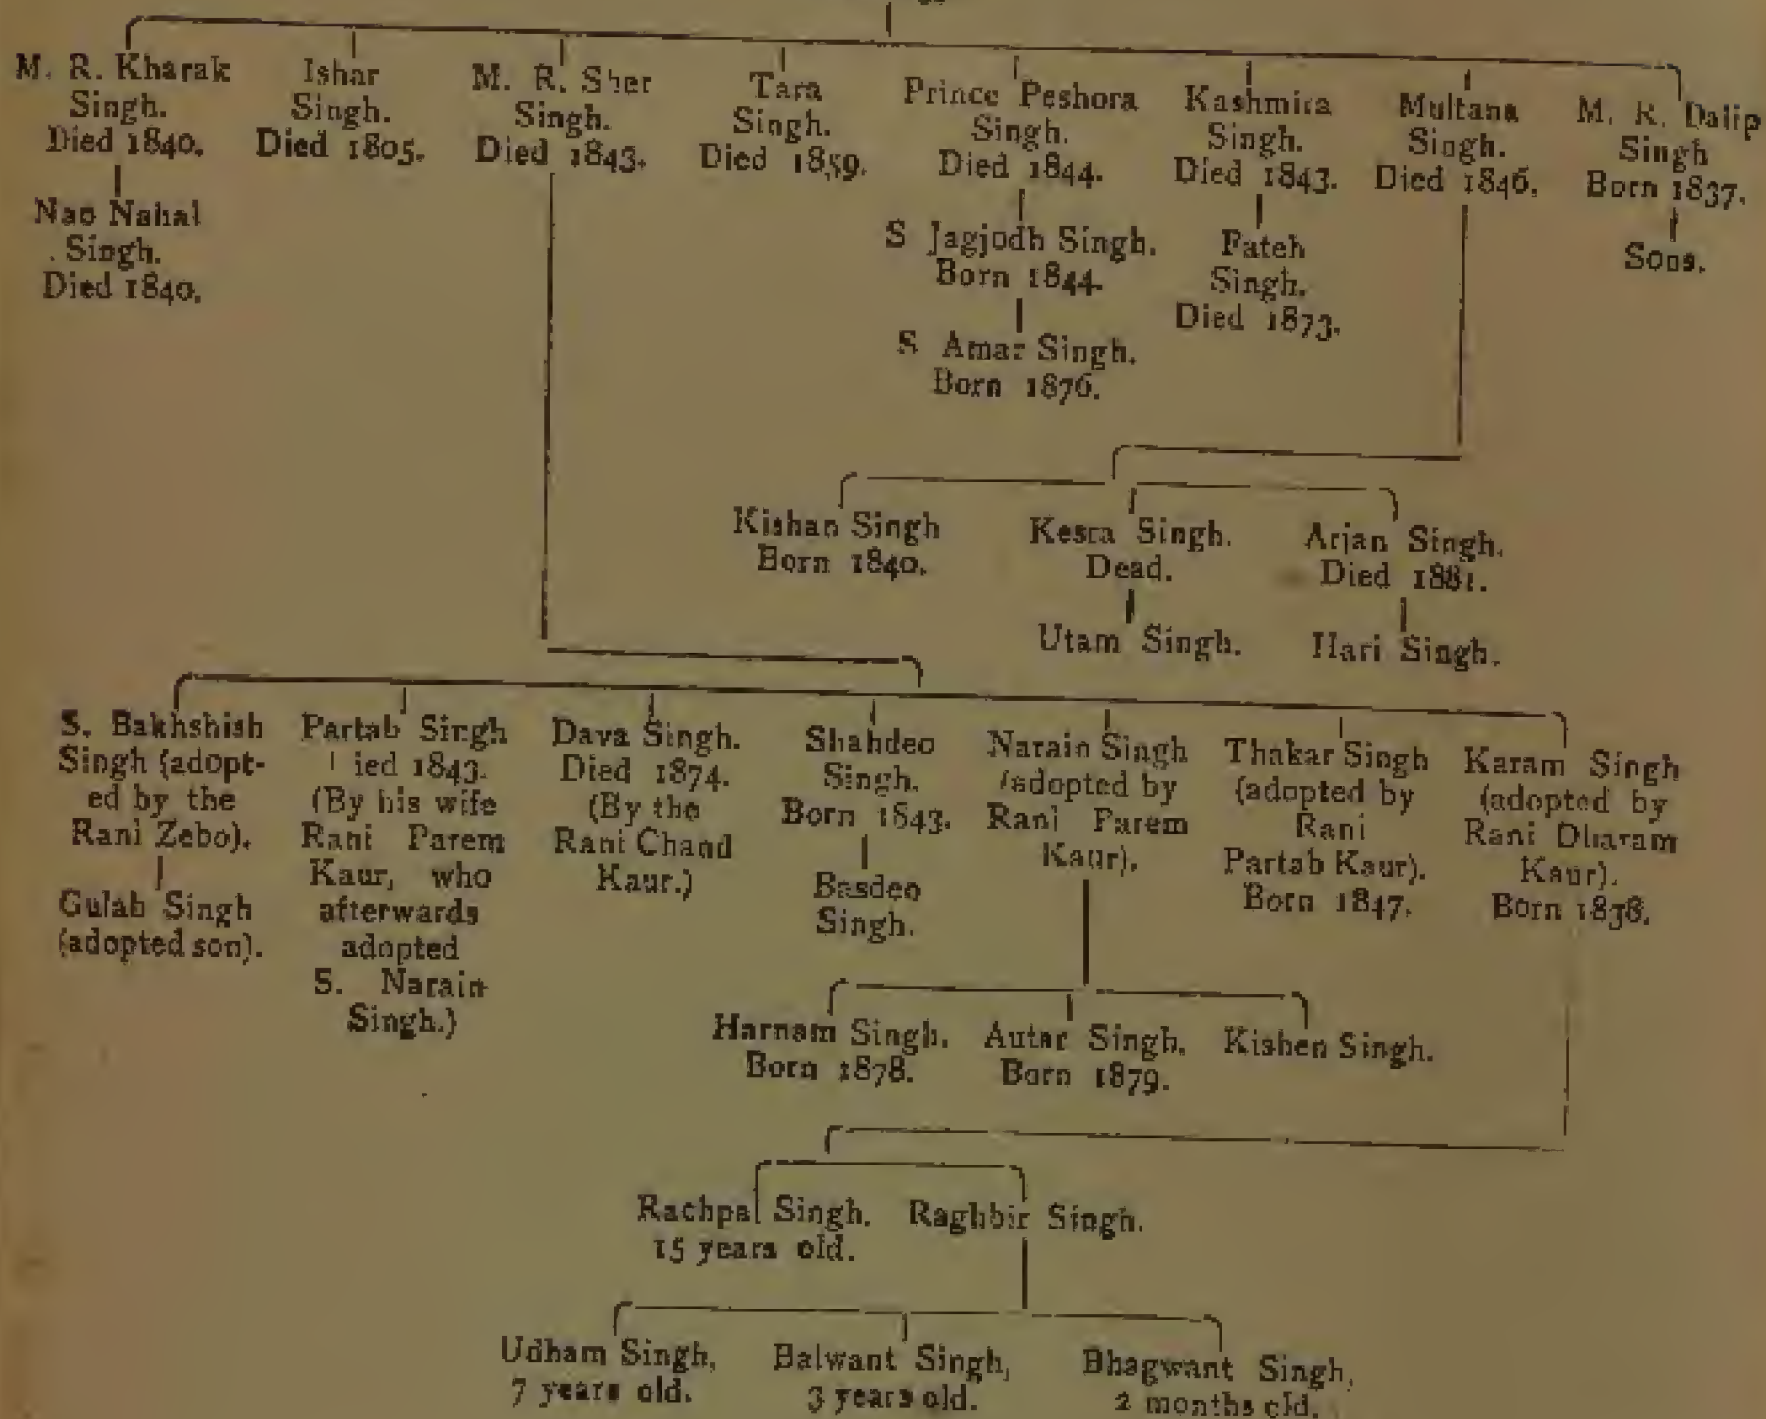 M. R. Kharak
Singh.
Died 1840.
Nao Nahal
Singh.
Died 1840.
Ishar
Singh.
Died 1805.
M. R. Sher
Singh.
Died 1843.
Tara
Singh.
Died 1859.
Prince Peshora
Singh.
Died 1844.
S Jagjodh Singh.
Born 1844.
S Amar Singh.
Born 1876.
Kashmira
Singh.
Died 1843.
Fateh
Singh.
Died 1873.
Multana
Singh.
Died 1846.
M. R. Dalip
Singh
Born 1837.
Sons.
Kishan Singh
Born 1840.
Kesra Singh.
Dead.
Utam Singh.
Arjan Singh.
Died 1881.
Hari Singh.
S. Bakhshish
Singh (adopt-
ed by the
Rani Zebo).
Gulab Singh
(adopted son).
Partab Singh
ied 1843.
(By his wife
Rani Parem
Kaur, who
afterwards
adopted
S. Narain
Singh.)
Dava Singh.
Died 1874.
(By the
Rani Chand
Kaur.)
Shahdeo
Singh.
Born 1843.
Basdeo
Singh.
Narain Singh
(adopted by
Rani Parem
Kaur).
Thakar Singh
(adopted by
Rani
Partab Kaur).
Born 1847.
Karam Singh
(adopted by
Rani Dharam
Kaur).
Born 1838.
Harnam Singh.
Born 1878.
Autar Singh.
Born 1879.
Kishen Singh.
Rachpal Singh.
15 years old.
Raghbir Singh.
Udham Singh,
7 years old.
Balwant Singh,
3 years old.
Bhagwant Singh,
2 months old.